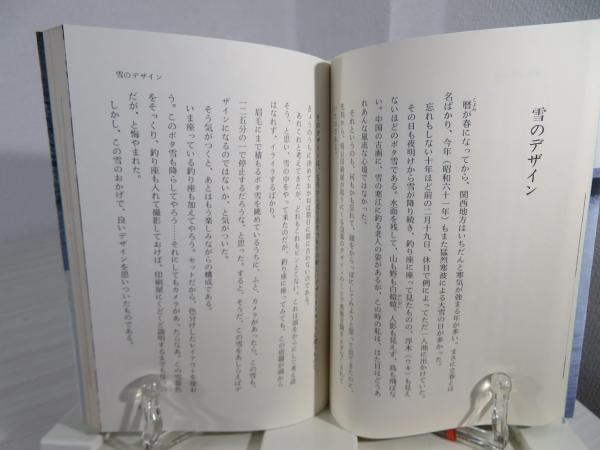 雪のデザイン
暦が春になってから、関西地方はいちだんと寒気が強まる年が多い。まさに立春とは
名ばかり、今年（昭和六十一年）もまた猛烈寒波による大雪の日が多かった。
忘れもしない十年ほど前の二月十九日、休日で例によってただ一人池に出かけていた。
その日も夜明けから雪が降り続き、釣り座に座って見たものの、浮木（ウキ）も見え
ないほどのボタ雪である。水面を残して、山も野も白皚皚。人影も見えず、鳥も飛ばな
い。中国の古画に、雪の寒江に釣る老人の姿があるが、この時の私は、はた目はどうあ
れあんな風流な心境ではなかった。
それというのも、何もかも忘れて、頭をからっぽにしてみようと
きょうのうちに決めておかねば期日に間に合わないのである。
あれこれと考えてきたが、どれもこれもピンとこない。これは頭をからにして考え直
そう、と思い、雪の中をやって来たのだが、釣り座に座ってみても、この宿題が頭から
はなれず、イライラするばかり。
眉毛にまで積もるボタ雪を眺めているうちに、ふと、カメラがあったら、この雪も、
一二五分の一で停止するだろうな、と思った。すると、そうだ、この雪をあしらえばデ
ザインになるのではないか、と気がついた。
そう気がつくと、あとはもう楽しみながらの構成である。
いま座っている釣り座も加えてやろう。セットだから、色分けしたレイアウトを使お
う。このボタ雪も降らしてやろう……それにしてもカメラがあったらなあ、この雪景色
をそっくり、釣り座も入れて撮影しておけば、印刷屋にくどくど説明するまでもな
だが、と悔やまれた。
しかし、この雪のおかげで、良いデザインを思いついたものである。
雪のデザイン